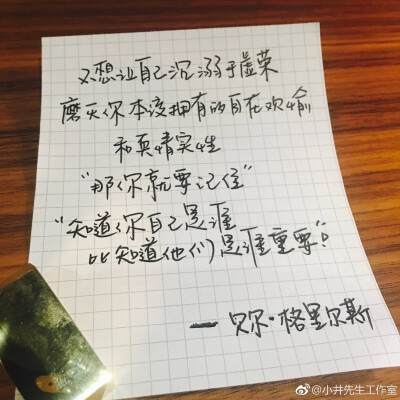 不想让自己沉溺于虚荣
磨灭你本该拥有的自在欢愉
和真情实性
"那你就要记住"
"知道你自己是谁
比知道他们是谁重要"。
一贝尔·格里尔斯
@小井先生工作室